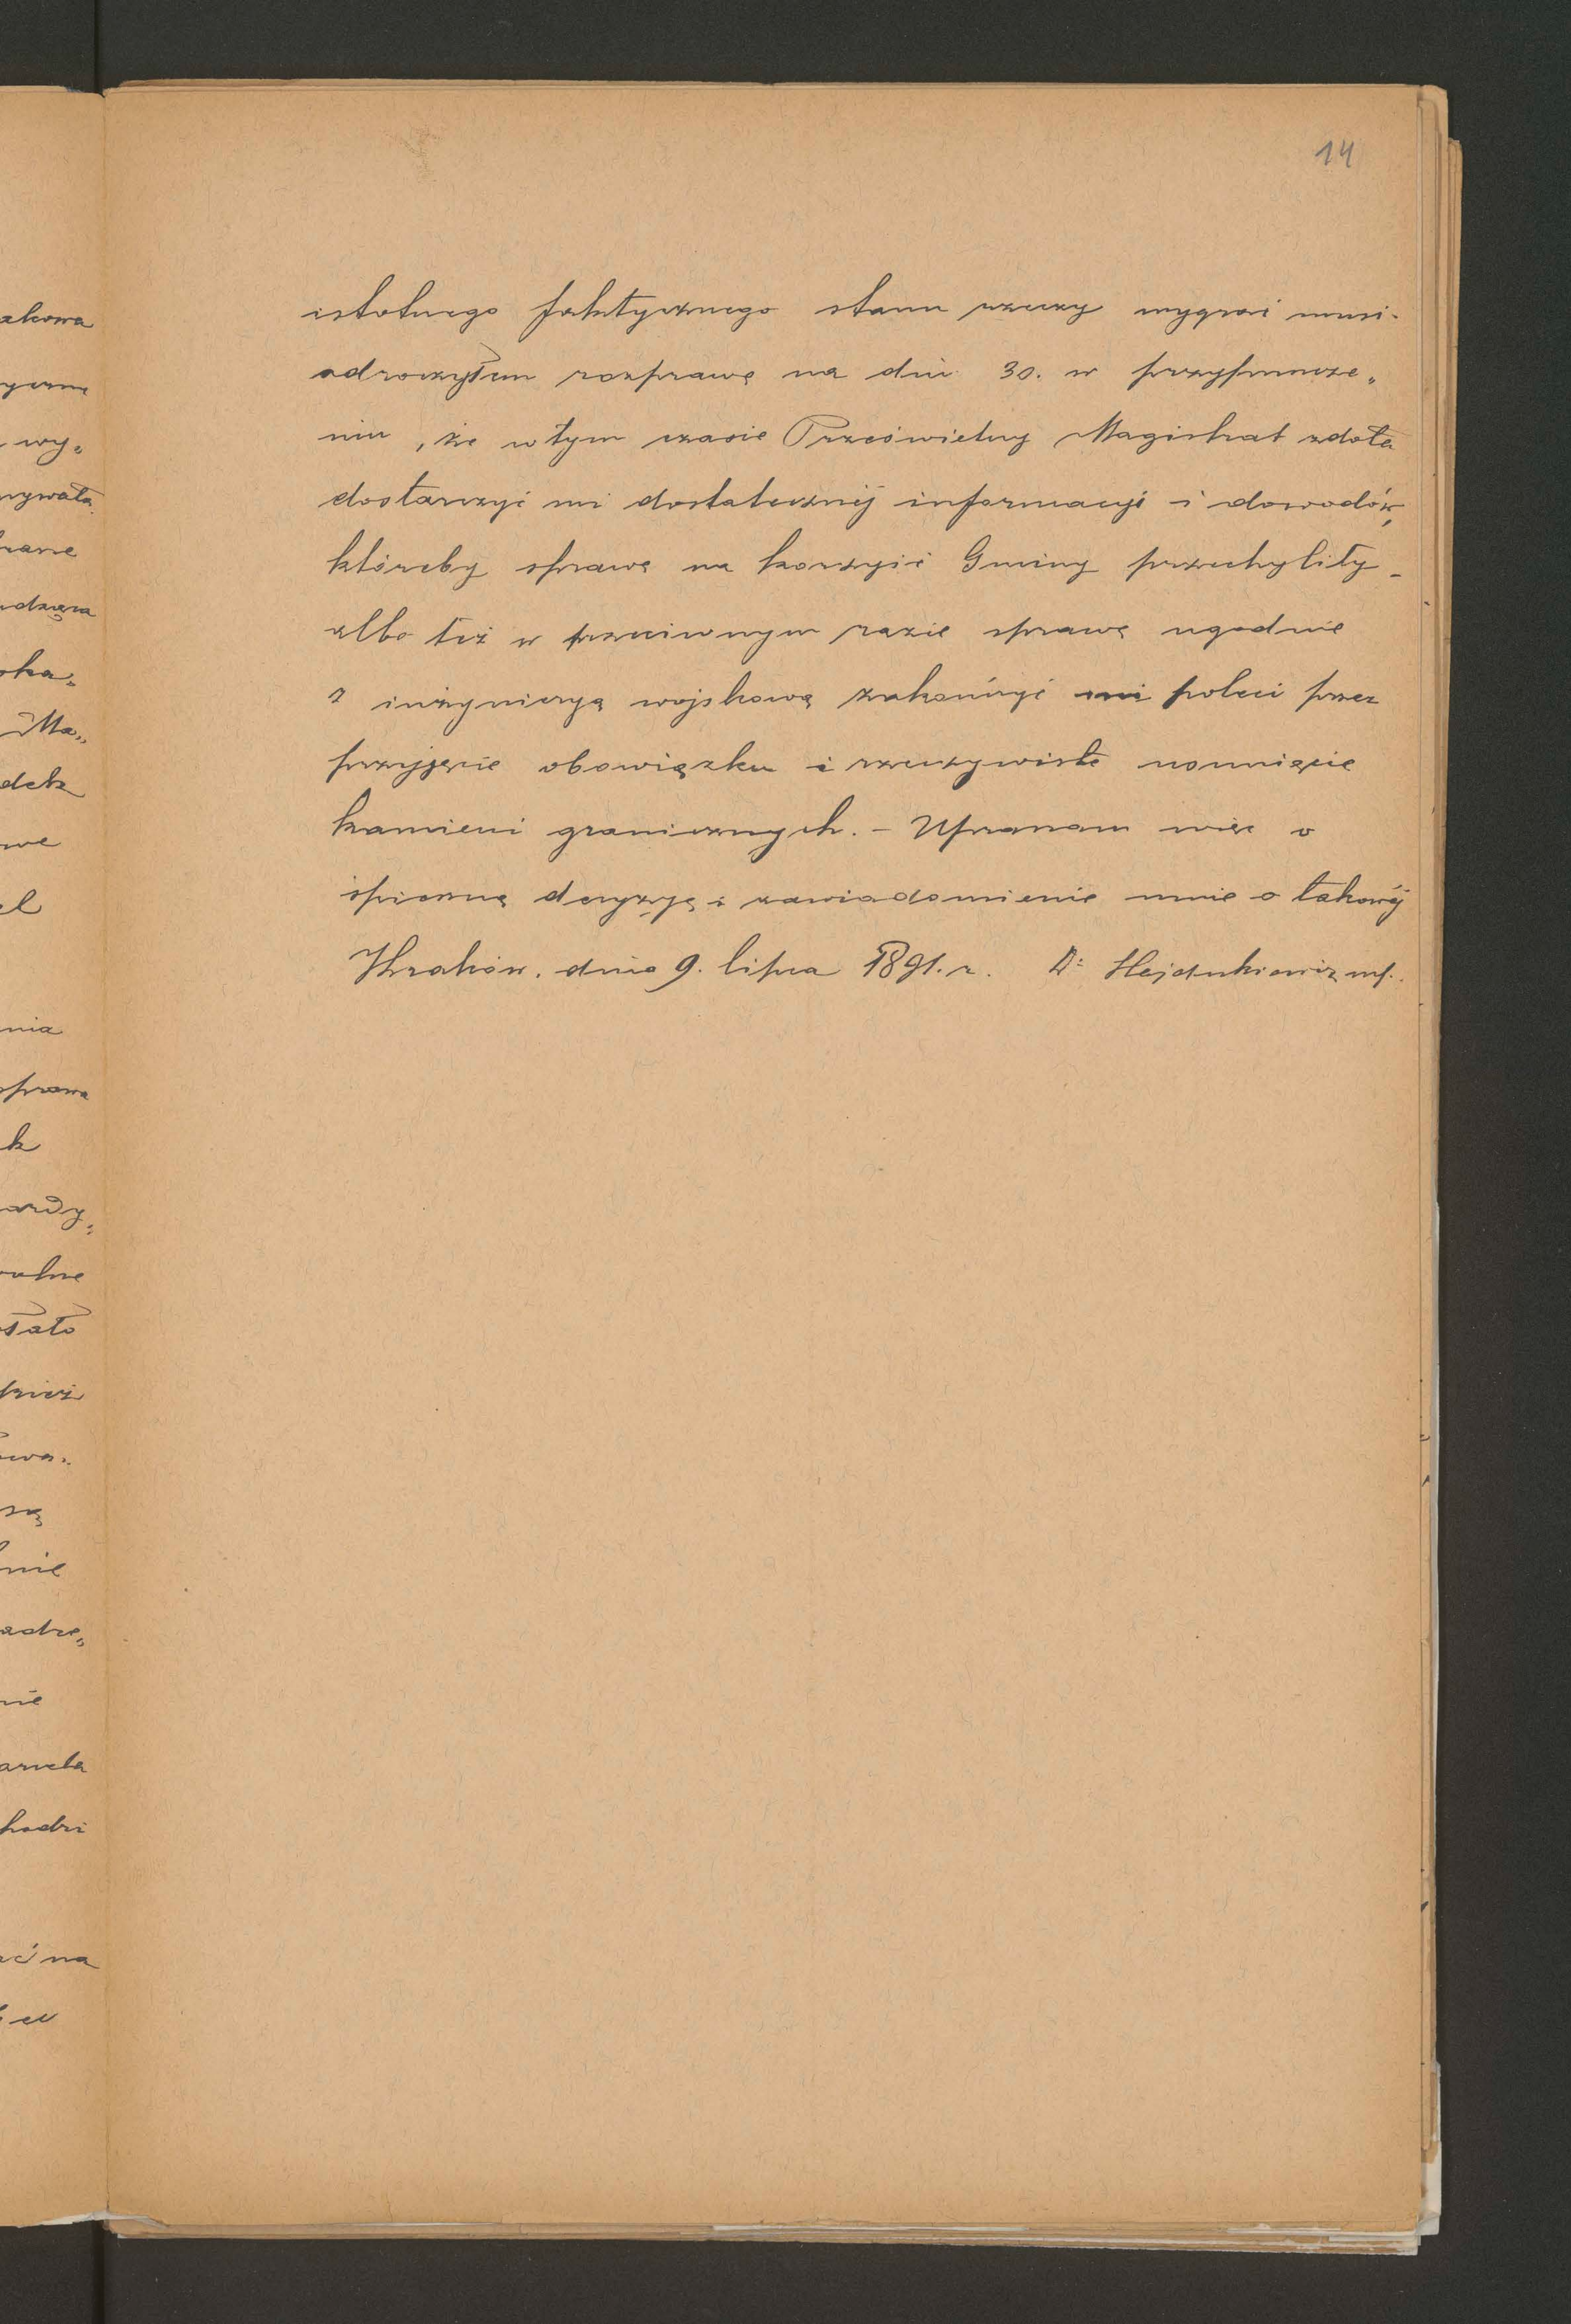 14
istotnego faktycznego stanu rzeczy wygrać musi -
odroczyłem rozprawę na dni 30. w przypuszcze„
niu, że w tym czasie Prześwietny Magistrat zdoła
dostarczyć mi dostatecznéj informacyi i dowodów,
któreby sprawę na korzyść Gminy przechyliły -
albo też w przeciwnym razie sprawę ugodnie
z inżynieryą wojskową zakończyć mi poleci przez
przyjęcie obowiązku i rzeczywiste usunięcie
kamieni granicznych. - Upraszam więc o
śpieszną decyzyję i zawiadomienie mnie o takowéj
Kraków. dnia 9. lipca 1891. r. Dr Hajdukiewicz mp.